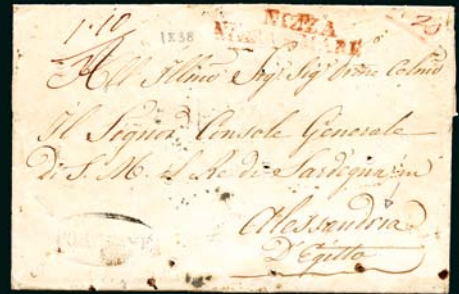 1.10
1838
NIZZA
MARE
All' Illmo Sigr Sigr Pron Colmo
Il Signor Console Generale
Di S. M. il Re di Sardegna in
Alessandria
D'Egitto